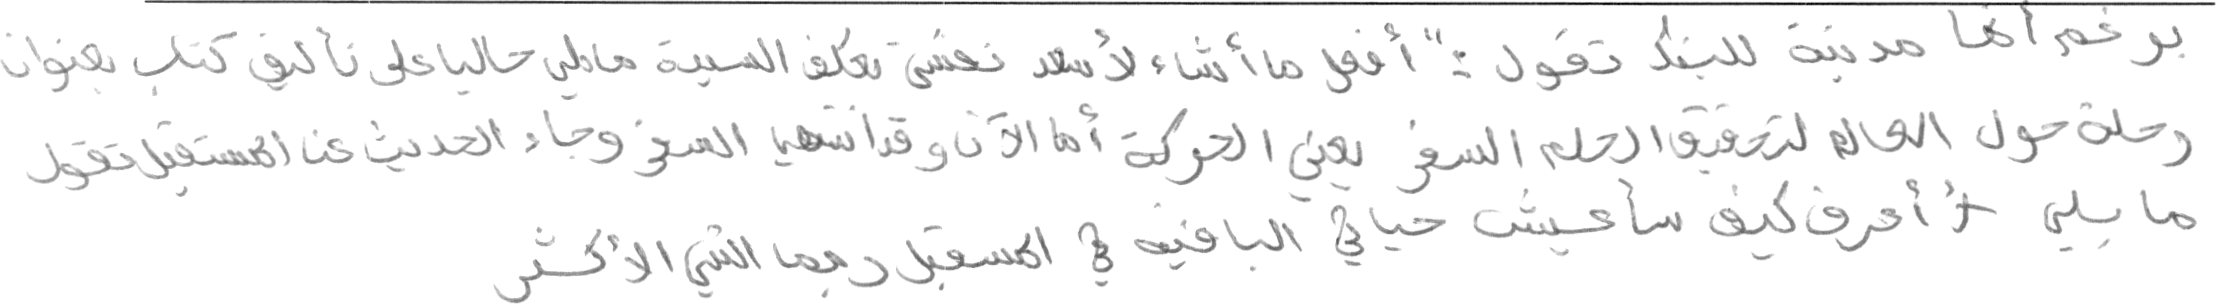 برغم أنها مدينة للبنك تقول :" أفعل ما أشاء لأسعد نفسي تعكف السيدة مايلي حاليا على تأليف كتاب بعنوان
رحلة حول العالم لتحقيق الحلم السفر يعني الحركة أما الآن وقد انتهى السفر وجاء الحديث عن المستقبل تقول
ما يلي لا أعرف كيف سأعيش حياتي الباقية في المستقبل ربما الشيء الأكثر